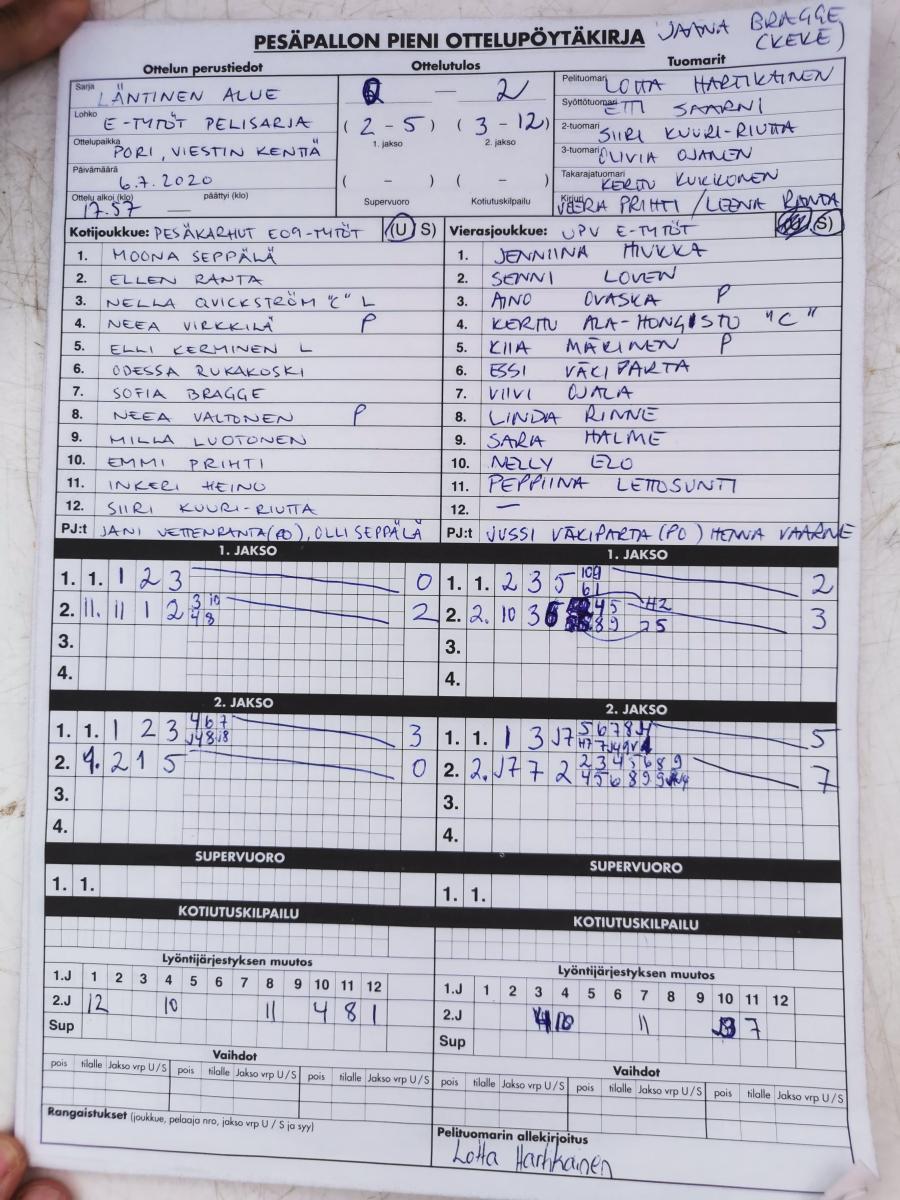 PESÄPALLON PIENI OTTELUPÖYTÄKIRJA JAANA BRAGGE
(KEKE)
Ottelun perustiedot Ottelutulos Tuomarit
Sarja LÄNTINEN ALUE 0 — 2 Pelituomari LOTTA HARTIKAINEN
Lohko E-TYTÖT PELISARJA (2 - 5) (3 - 12) Syöttötuomari ETI SAARNI
1. jakso 2. jakso 2-tuomari SIIRI KUURI-RIUTTA
Ottelupaikka PORI, VIESTIN KENTÄ 3-tuomari OLIVIA OJANEN
Päivämäärä 6.7.2020 ( - ) ( - ) Takarajatuomari KERTU KUKKONEN
Ottelu alkoi (klo) 17.57 päättyi (klo) — Supervuoro Kotiutuskilpailu Kirjuri VEERA PRIHTI / LEENA RANTA
Kotijoukkue: PESÄKARHUT E09-TYTÖT (U S) Vierasjoukkue: UPV E-TYTÖT (S)
1. MOONA SEPPÄLÄ 1. JENNIINA HIUKKA
2. ELLEN RANTA 2. SENNI LOVEN
3. NELLA QVICKSTRÖM "C" L 3. AINO OVASKA P
4. NEEA VIRKKILÄ P 4. KERTU ALA-HONGISTO "C"
5. ELLI KERMINEN L 5. KIIA MÄKINEN P
6. ODESSA RUKAKOSKI 6. ESSI VÄKIPARTA
7. SOFIA BRAGGE 7. VIIVI OJALA
8. NEEA VALTONEN P 8. LINDA RINNE
9. MILLA LUOTONEN 9. SARA HALME
10. EMMI PRIHTI 10. NELLY ELO
11. INKERI HEINO 11. PEPPIINA LETTOSUNTI
12. SIIRI KUURI-RIUTTA 12. —
PJ:t JANI VETTENRANTA (PO), OLLI SEPPÄLÄ PJ:t JUSSI VÄKIPARTA (PO) HENNA VAARNE
1. JAKSO 1. JAKSO
1. 1. 1 2 3 0 1. 1. 2 3 5 109 2
61
2. 11. 11 1 2 3 10 2 2. 2. 10 3 45 42 3
4 8 89 25
3. 3.
4. 4.
2. JAKSO 2. JAKSO
1. 1. 1 2 3 4 6 7 3 1. 1. 1 3 J7 5 6 7 8 5
J4 8 J8
2. 9. 2 1 5 0 2. 2. J7 7 2 2 3 4 5 6 8 9 7
4 5 6 8 9 9
3. 3.
4. 4.
SUPERVUORO SUPERVUORO
1. 1. 1. 1.
KOTIUTUSKILPAILU KOTIUTUSKILPAILU
Lyöntijärjestyksen muutos Lyöntijärjestyksen muutos
1.J 1 2 3 4 5 6 7 8 9 10 11 12 1.J 1 2 3 4 5 6 7 8 9 10 11 12
2.J 12 10 11 4 8 1 2.J 4 10 11 7
Sup Sup
Vaihdot Vaihdot
pois tilalle Jakso vrp U/S pois tilalle Jakso vrp U/S pois tilalle Jakso vrp U/S pois tilalle Jakso vrp U/S pois tilalle Jakso vrp U/S pois tilalle Jakso vrp U/S
Rangaistukset (joukkue, pelaaja nro, jakso vrp U / S ja syy)
Pelituomarin allekirjoitus
Lotta Hartikainen